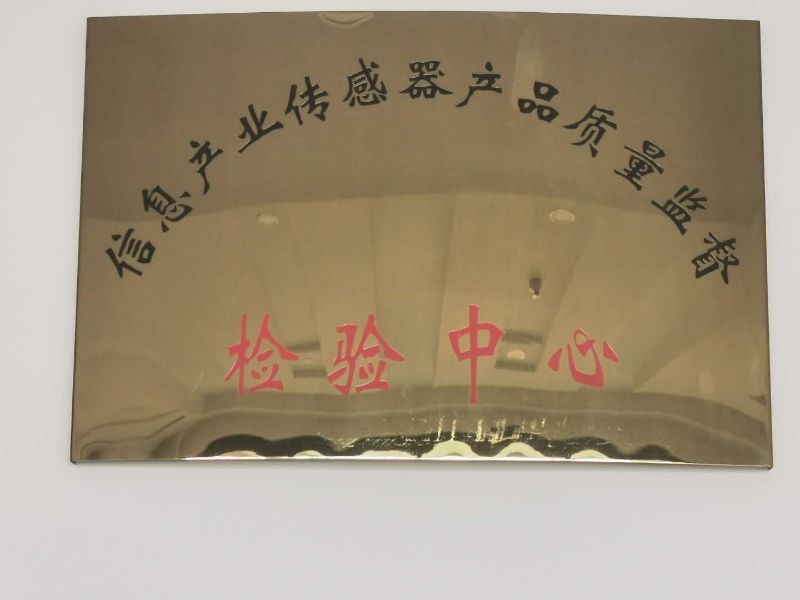 信息产业传感器产品质量监督
检验中心